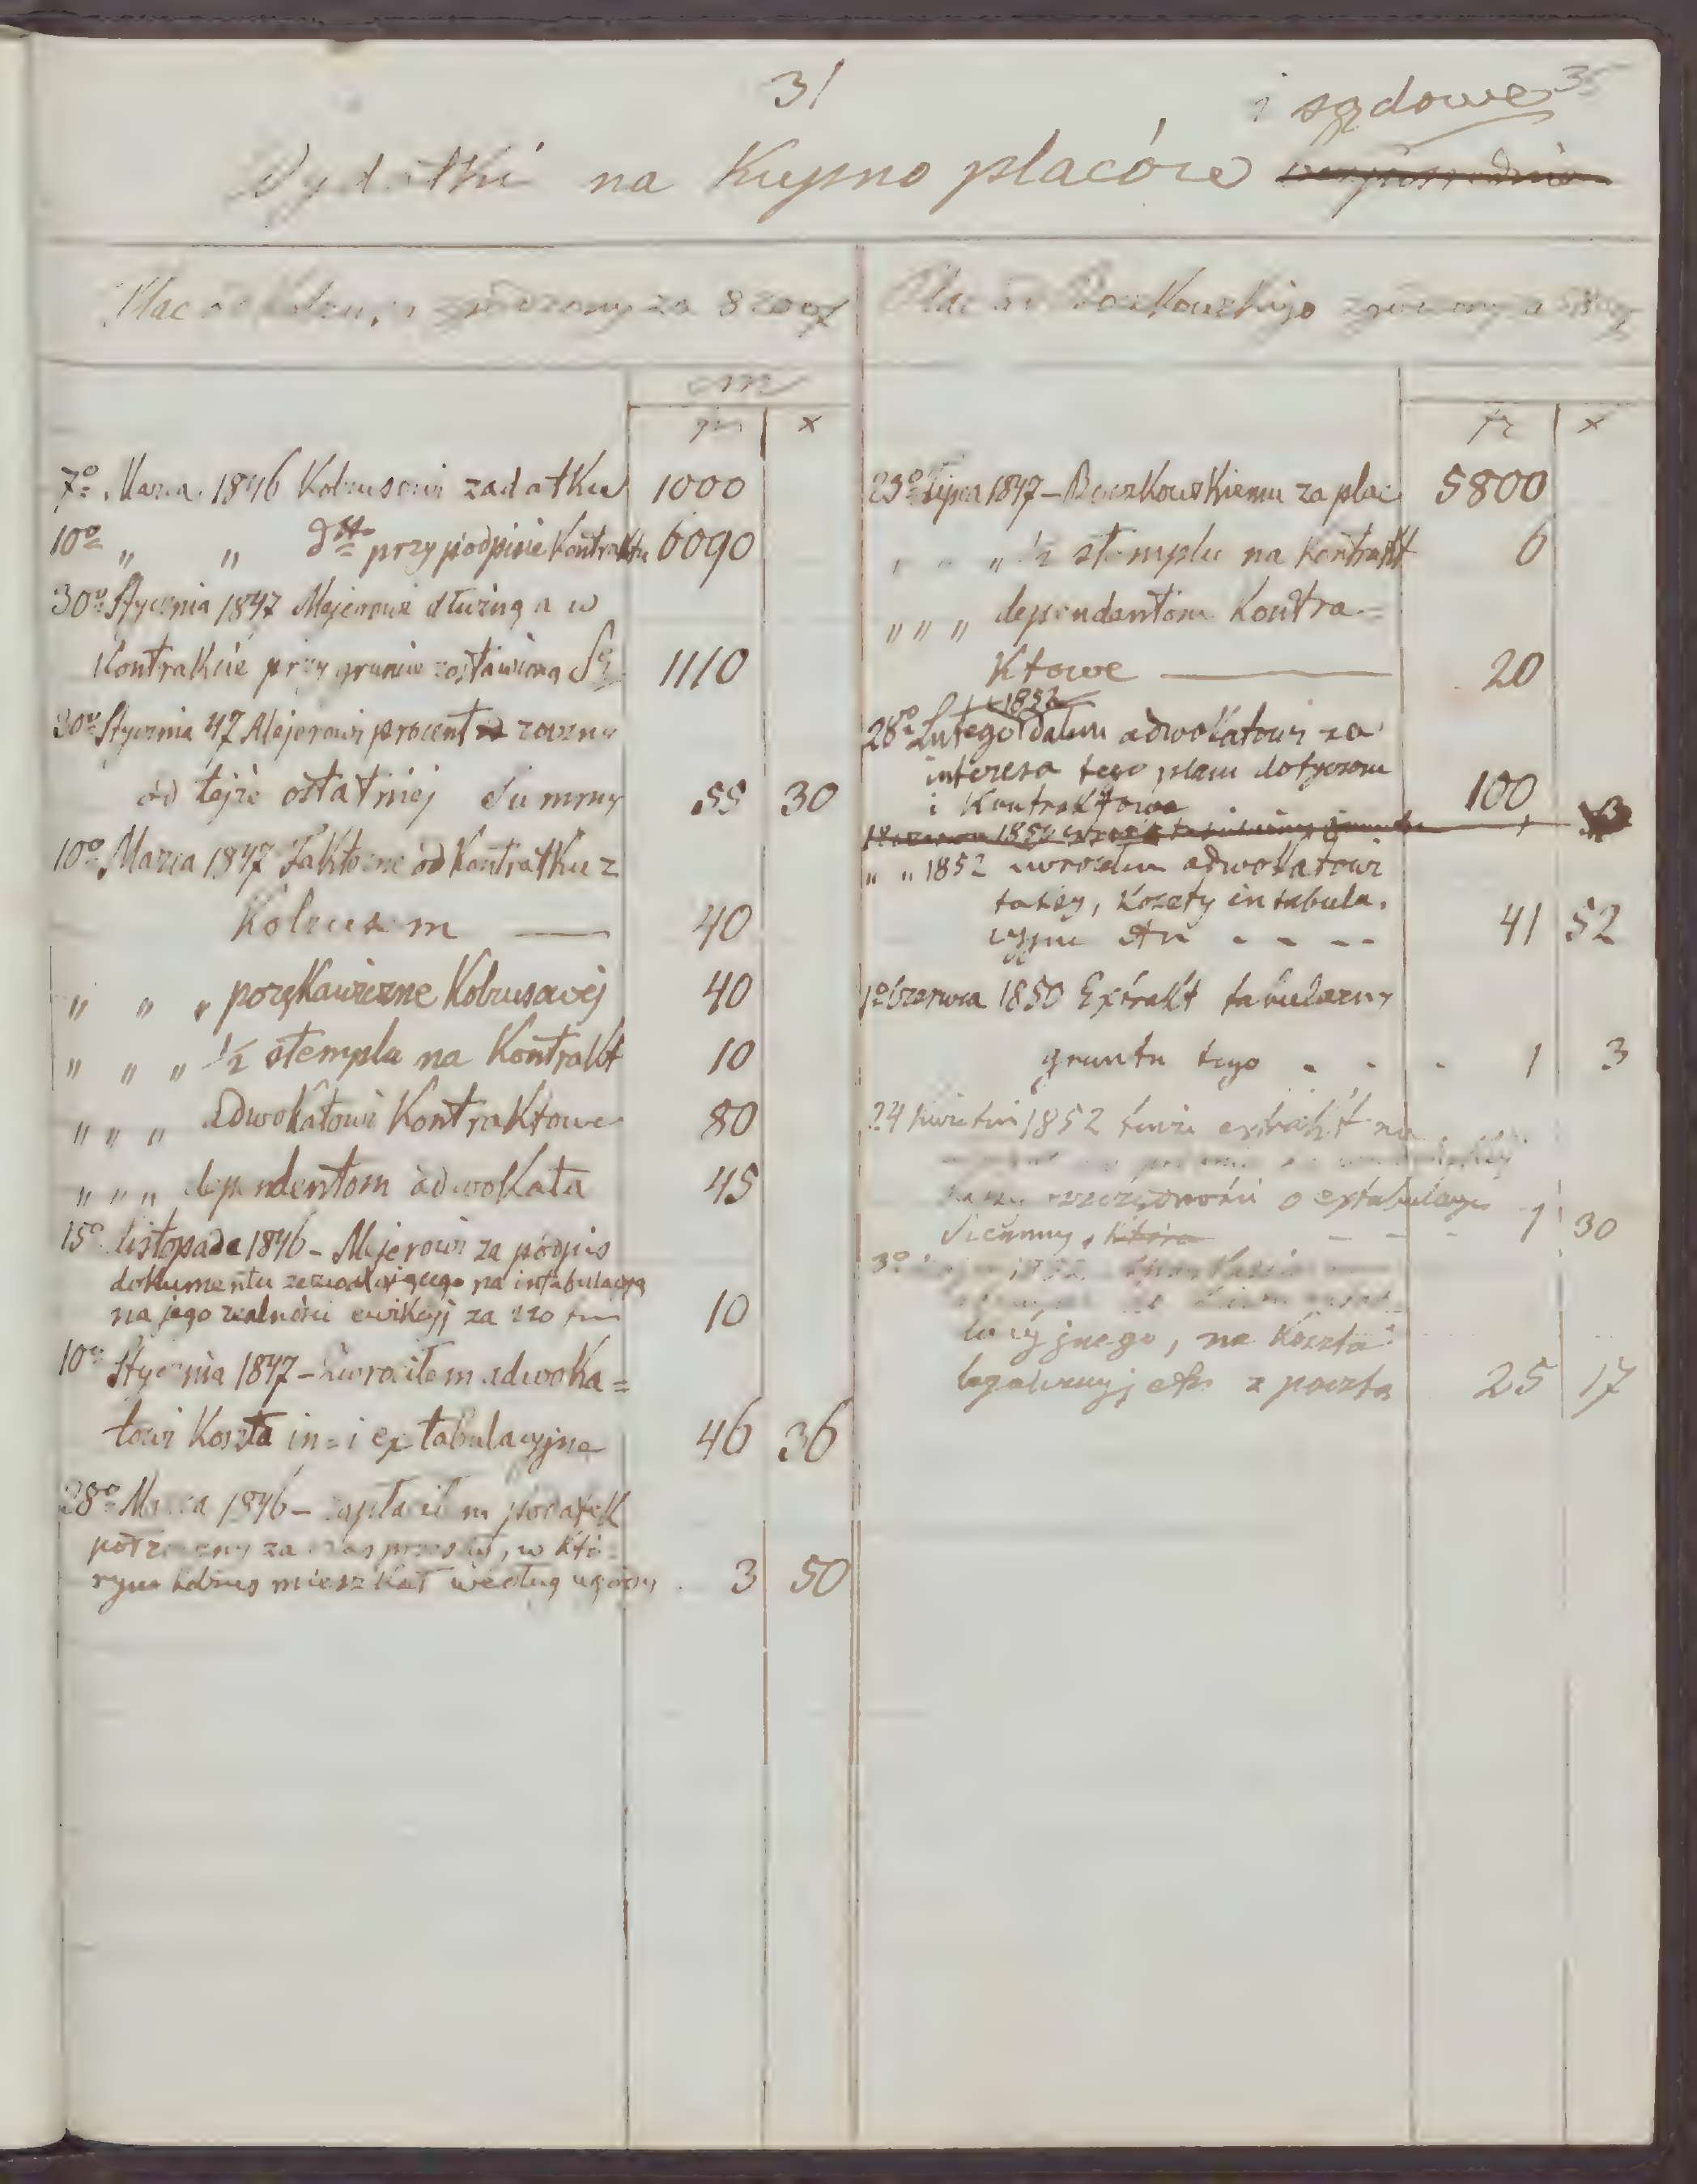 31
i sądowe 35
Wydatki na Kupno placów
Plac od Kobrusa zgodzony za 8200
Plac od Boczkowskiego zgodzony
cm
fr x
fr x
7º Marca 1846 Kobrusowi zadatku 1000
10º " " dtto przy podpisie Kontraktu 6090
30º Stycznia 1847 Mejerowi dłużną a w
Kontrakcie przy gruncie zostawioną 1110
30º Stycznia 47 Mejerowi procent roczny
od tejże ostatniej Summy 55 30
10º Marca 1847 Faktorne od Kontraktu z
Kobrusem — 40
" " " porękawiczne Kobrusowej 40
" " " ½ stempla na Kontrakt 10
" " " adwokatowi Kontraktowe 80
" " " dependentom adwokata 45
15º listopada 1846 - Mejerowi za podpis
dokumentu zezwalającego na intabulacyą
na jego realności ewikcyj za 10
10º Stycznia 1847 - Zwróciłem adwoka=
towi Koszta in= i extabulacyjne 46 36
28º Marca 1846 - zapłaciłem podatek
za czas przeszły, w któ=
rym Kobrus mieszkał według ugody 3 50
23º Lipca 1847 - Boczkowskiemu za plac 5800
" " " ½ stemplu na Kontrakt 6
" " " dependentom Kontra=
ktowe — 20
1852
28º Lutego dałem adwokatowi za
interesa tego placu dotyczące
i Kontraktowe 100
" " 1852 zwróciłem adwokatowi
taksy, koszty intabula.
cyjne - - - - 41 52
1º Czerwca 1850 Extrakt tabularny
gruntu tego - - - 1 3
24 kwietnia 1852 extrakt na
o extabulacyę
Summy, która - - - 1 30
3º 1852
lacyjnego, na Koszta
legalizacyj etc z pocztą 25 17